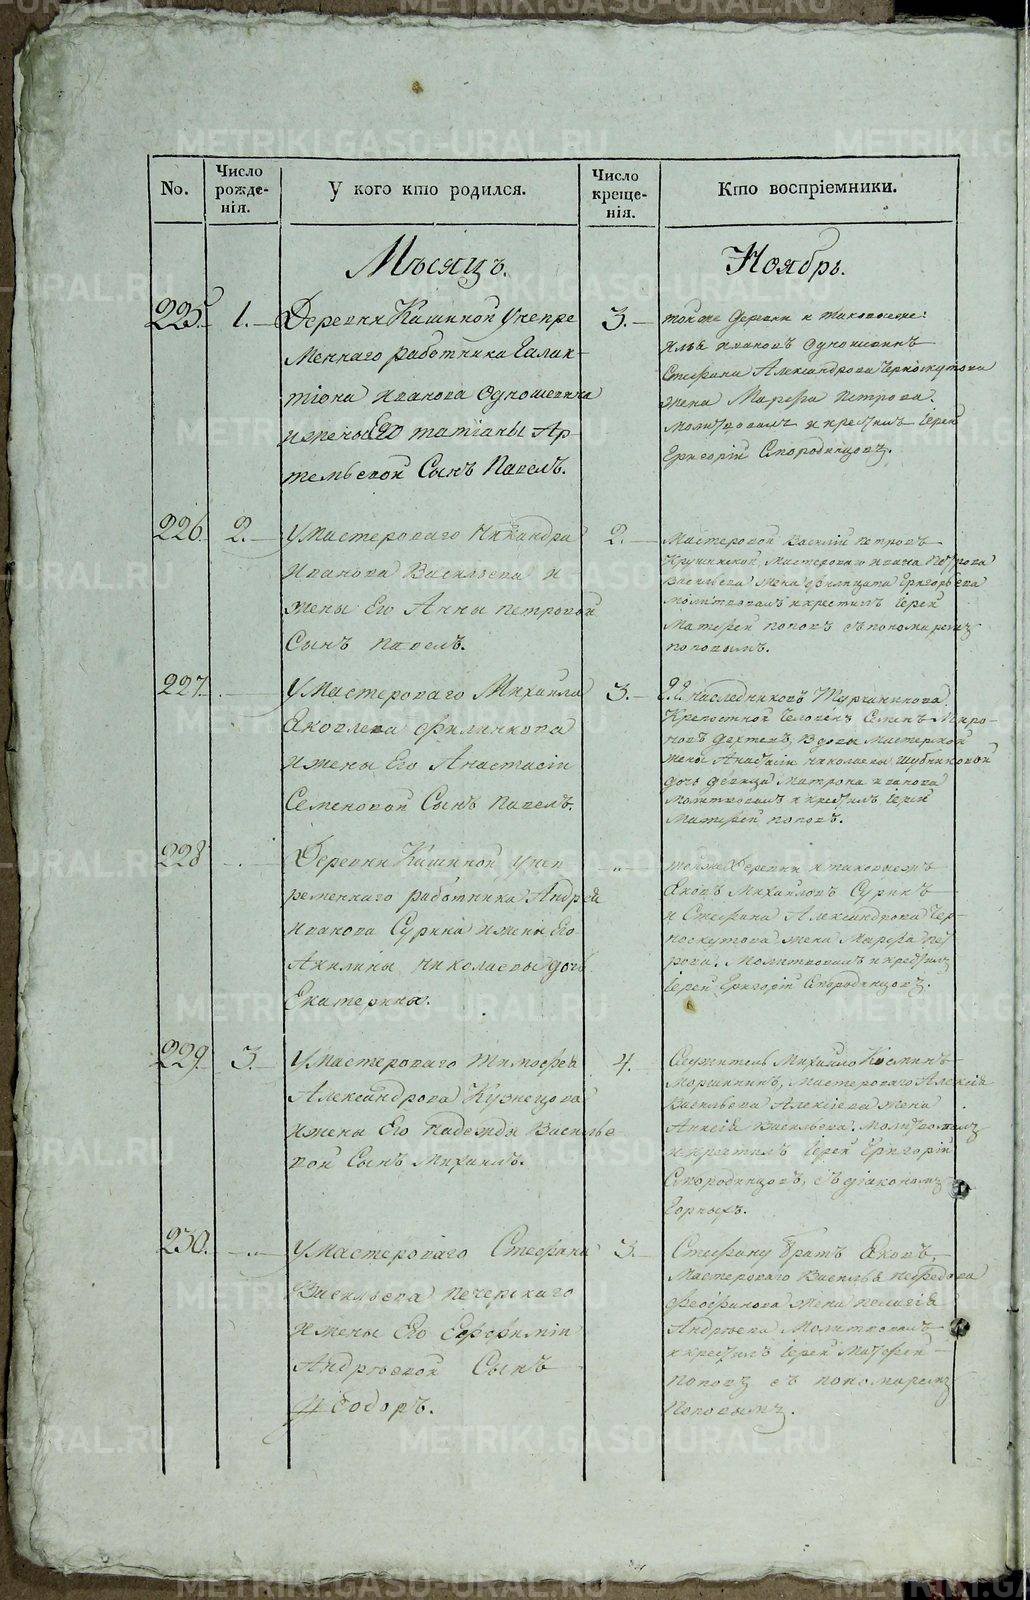 No.
Число рожде-нія.
У кого кто родился.
Число креще-нія.
Кто воспріемники.
Мѣсяцъ.
Ноябрь.
225. 1.
Деревни Кашиной Унепре
меннаго работника Галак-
тіона Иванова Одношевина
и жены Его татіаны Ар-
темьевой Сынъ Павелъ.
3.
тойже деревни и таковогоже
Илья Ивановъ Одношевинъ
Стефана Александрова Черноскутова
жена Марфа Петрова.
Молитвовалъ и крестилъ Іерей
Григорій Смородинцовъ.
226. 2.
У Мастероваго Никандра
Иванова Васильева и
жены Его Анны Петровой
Сынъ Павелъ.
2.
Мастеровой Василій Петровъ
Мастероваго Ивана Петрова
Васильева жена Фелицата Григорьева
молитвовалъ и крестилъ Іерей
Матфей Поповъ съ пономаремъ
Поповымъ.
227.
У Мастероваго Михаила
Яковлева Филинкова
и жены Его Анастасіи
Семеновой Сынъ Павелъ.
3.
Г. Г. наследниковъ Турчанинова
Крепостной Человекъ Семенъ Миро-
новъ Вдовы Мастерской
жены Анастасіи Николаевы Шубниковой
дочь девица Матрона Иванова
Молитвовалъ и крестилъ Іерей
Матфей Поповъ.
228.
Деревни Кашиной Унеп
ременнаго работника Андрей
Иванова Сурина и жены Его
Акилины Николаевы дочь
Екатерина.
„
тойже Деревни и таковыежъ
Яковъ Михайловъ Суринъ
и Стефана Александрова Чер-
носкутова жена Марфа Пет
рова. Молитвовалъ и крестилъ
Іерей Григорій Смородинцовъ.
229. 3.
У Мастероваго Тимофея
Александрова Кузнецова
и жены Его Надежды Василье
вой Сынъ Михаилъ.
4.
Служитель Михайло Косминъ
Моршининъ, Мастероваго Алексія
Васильева Алексіева жена
Васильева, Молитвовалъ
и крестилъ Іерей Григорій
Смородинцовъ, съ діакономъ
Горныхъ.
230. „
У Мастероваго Стефана
Васильева Печерскаго
и жены Его Евфиміи
Андреевой Сынъ
Феодоръ.
3.
Стефану братъ Яковъ,
Мастероваго Василья Нефедова
Феофанова жена Пелагія
Андреева Молитвовалъ
и крестилъ Іерей Матфей
Поповъ съ пономаремъ
Поповымъ.
METRIKI.GASO-URAL.RU